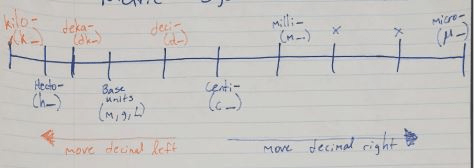 kilo-
(k_)
Hecto-
(h_)
deka-
(dk_)
Base
units
(m, g, L)
deci-
(d_)
Centi-
(c_)
milli-
(m_)
x
x
micro-
(μ_)
move decimal left
move decimal right